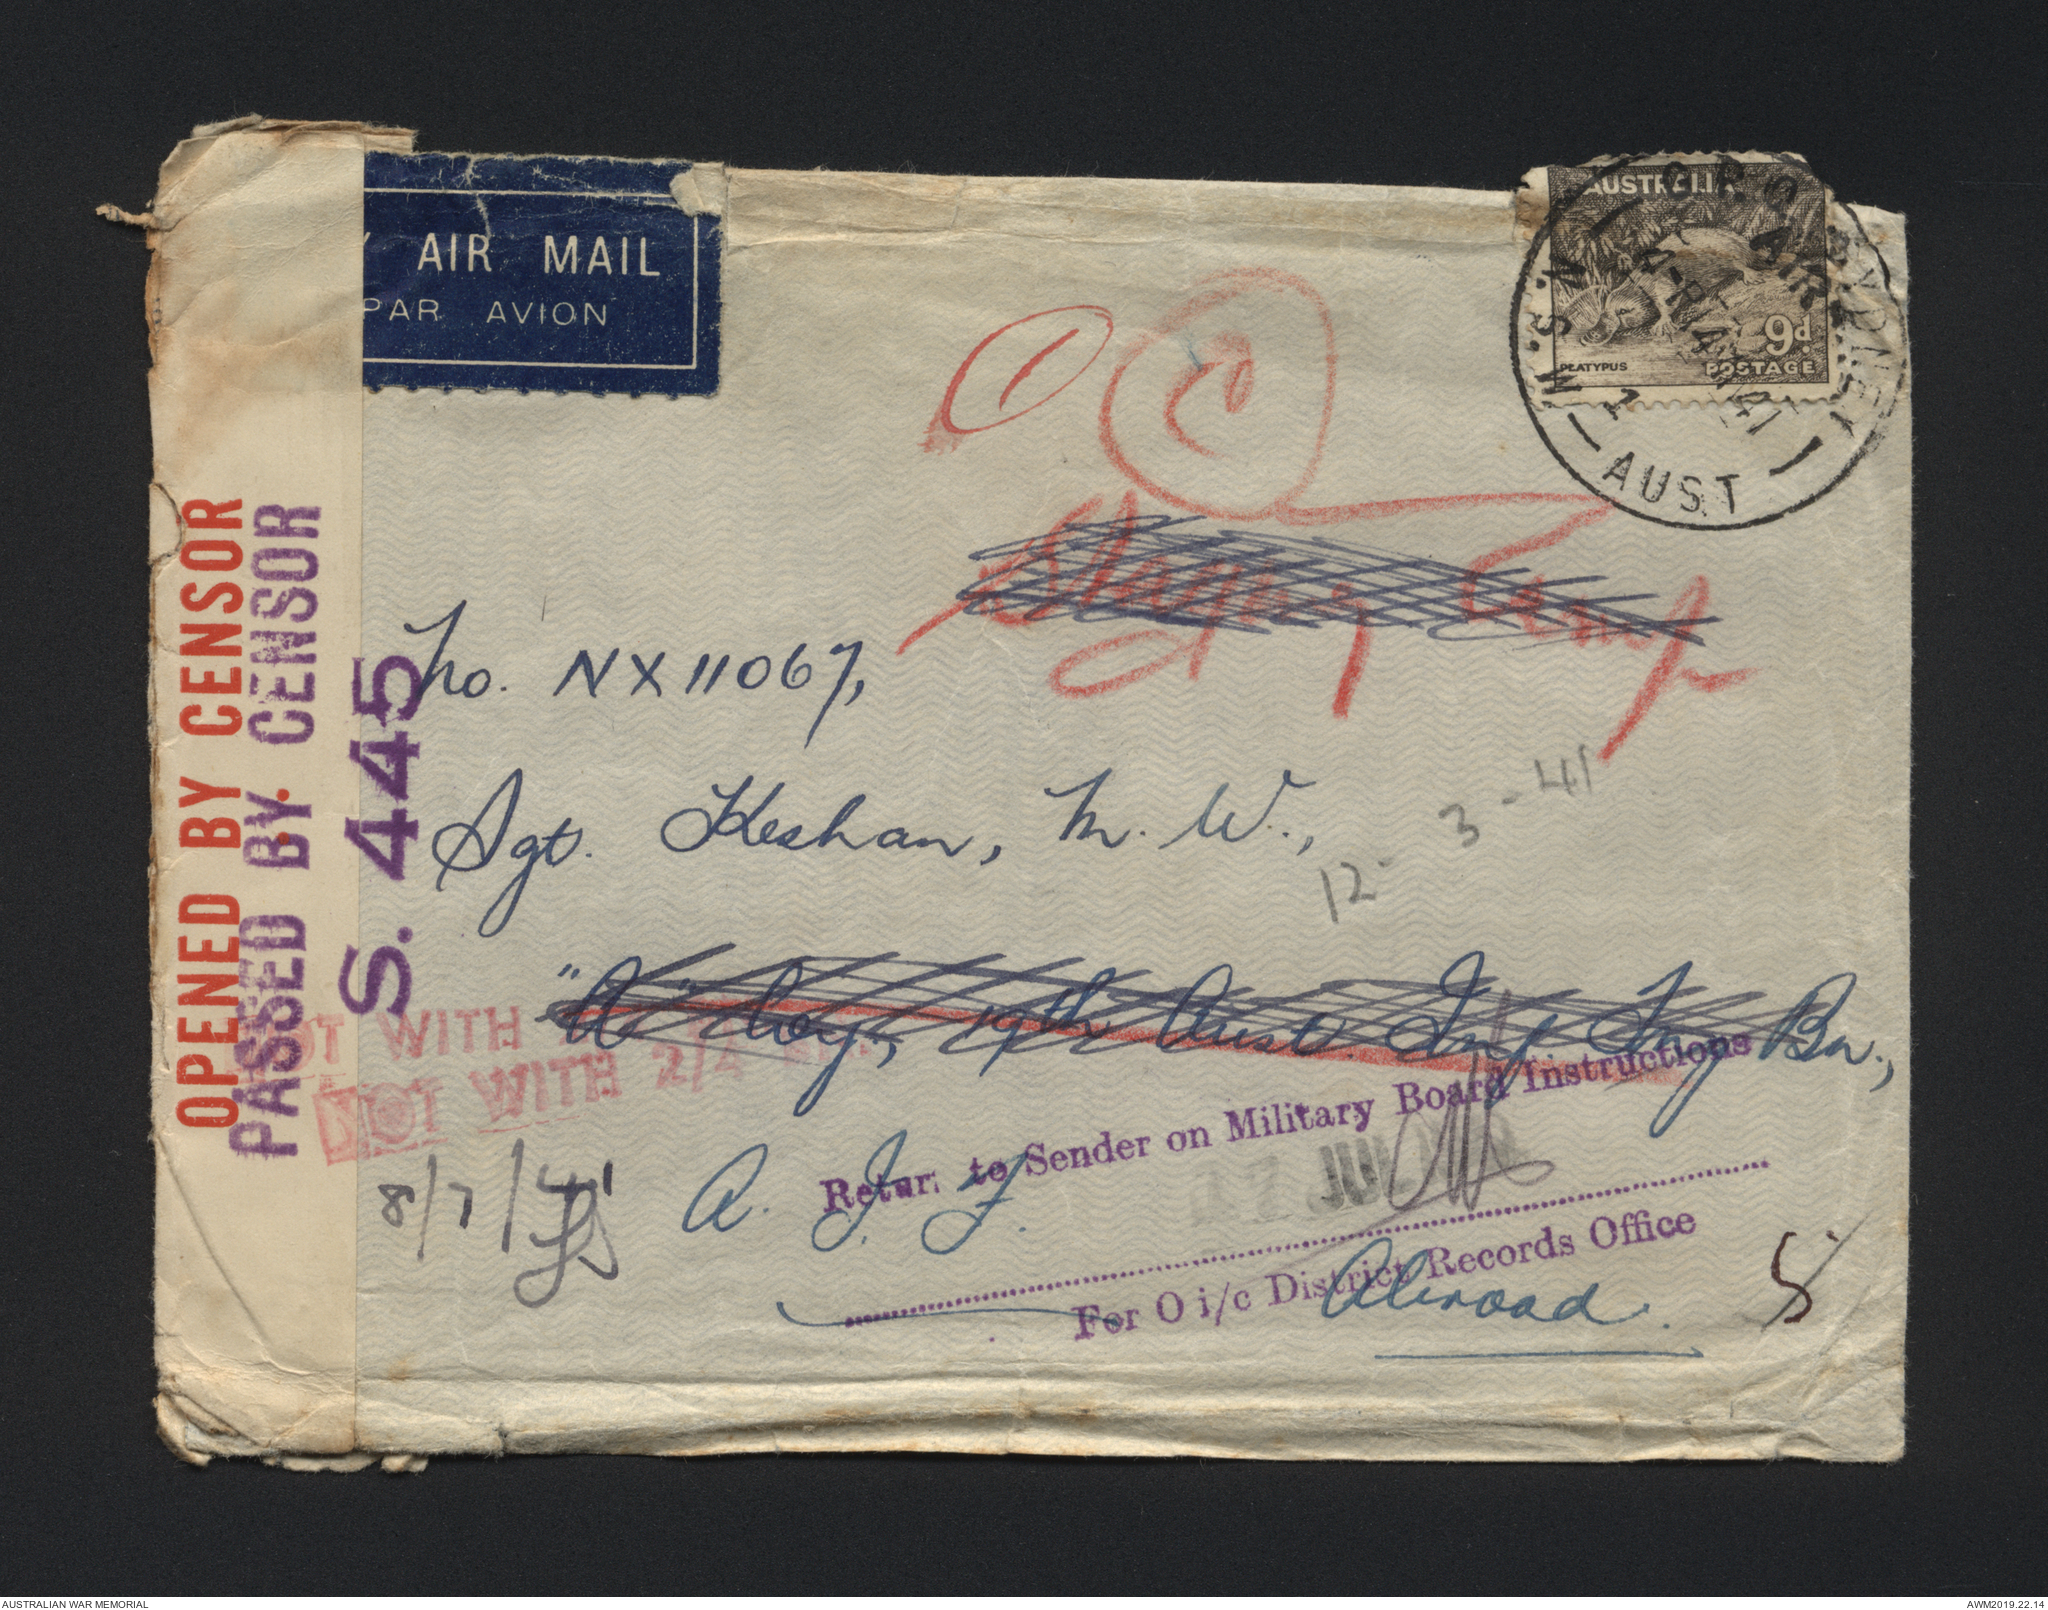 AIR MAIL
PAR AVION
AUSTRALIA
PLATYPUS
9d.
POSTAGE
G.P.O. SYDNEY
AIR
41
N.S.W.
AUST
OPENED BY CENSOR
PASSED BY. CENSOR
S. 445
1
Staging Camp
No. NX11067,
Sgt. Keshan, M. W.,
12-3-41
"A" Coy, 19th Aust. Inf Trg Bn.,
NOT WITH
NOT WITH 2/4
8/7/41
A. I. F.
Return to Sender on Military Board Instructions
17 JUL
For O i/c District Records Office
Abroad.
5
AUSTRALIAN WAR MEMORIAL
AWM2019.22.14